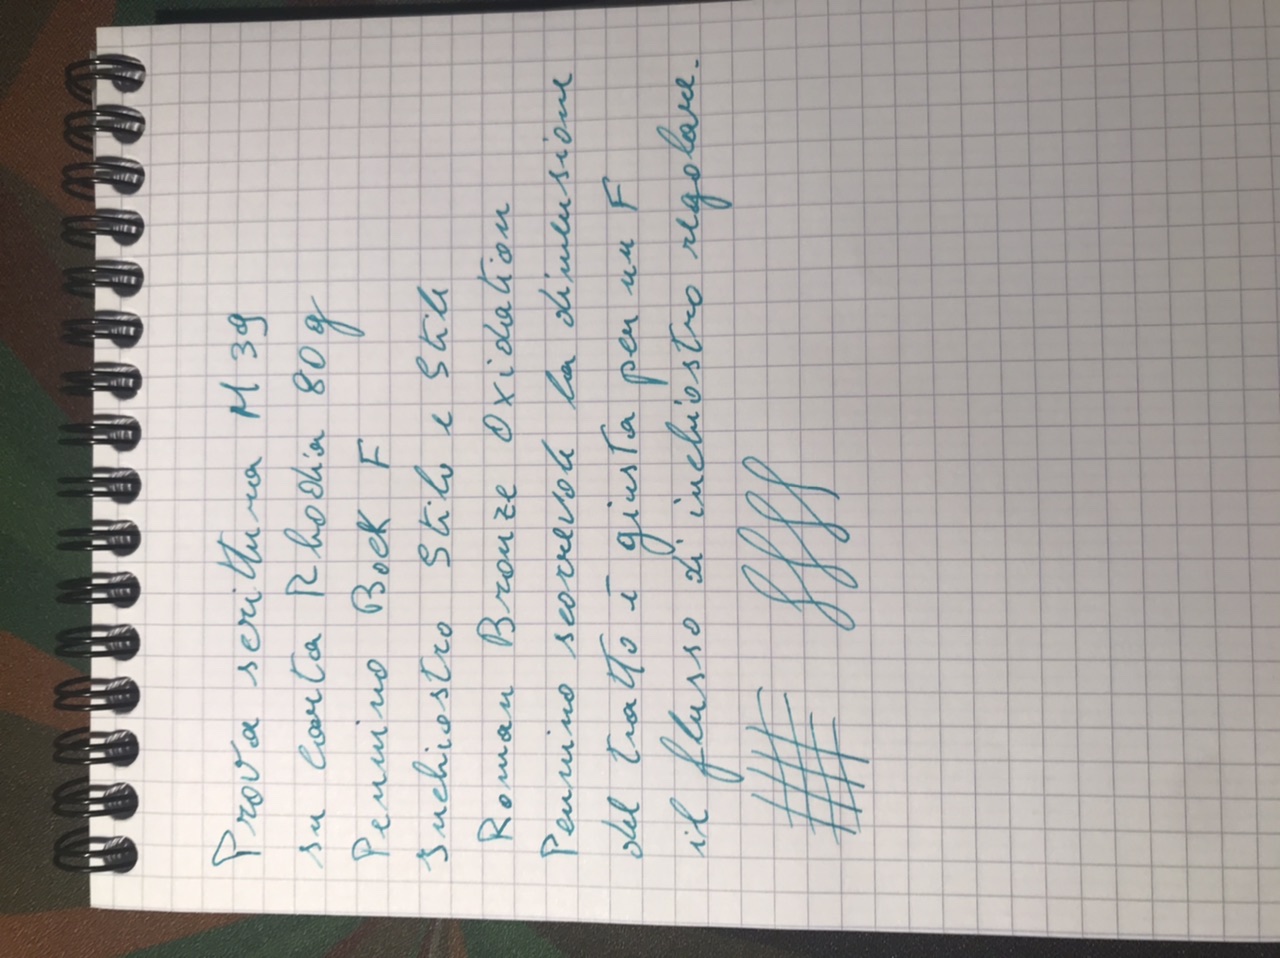 Prova scrittura M39
su carta Rhodia 80 g
Pennino Bock F
Inchiostro Stilo e Stile
Roman Bronze Oxidation
Pennino scorrevole la dimensione
del tratto è giusta per un F
il flusso di inchiostro regolare.